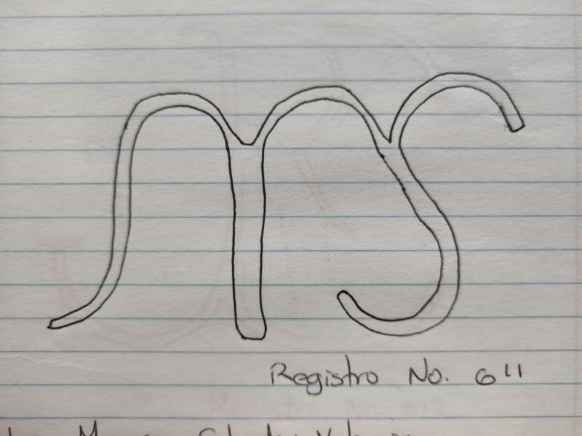 MS
Registro No. 6"